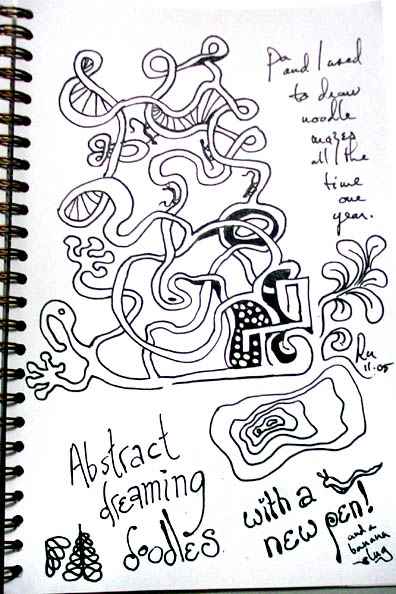 Pa
and I used
to draw
noodle
mazes
all the
time
one
year.
Ru
11.05
Abstract
dreaming
doodles
with a
new pen!
and a
banana
slug